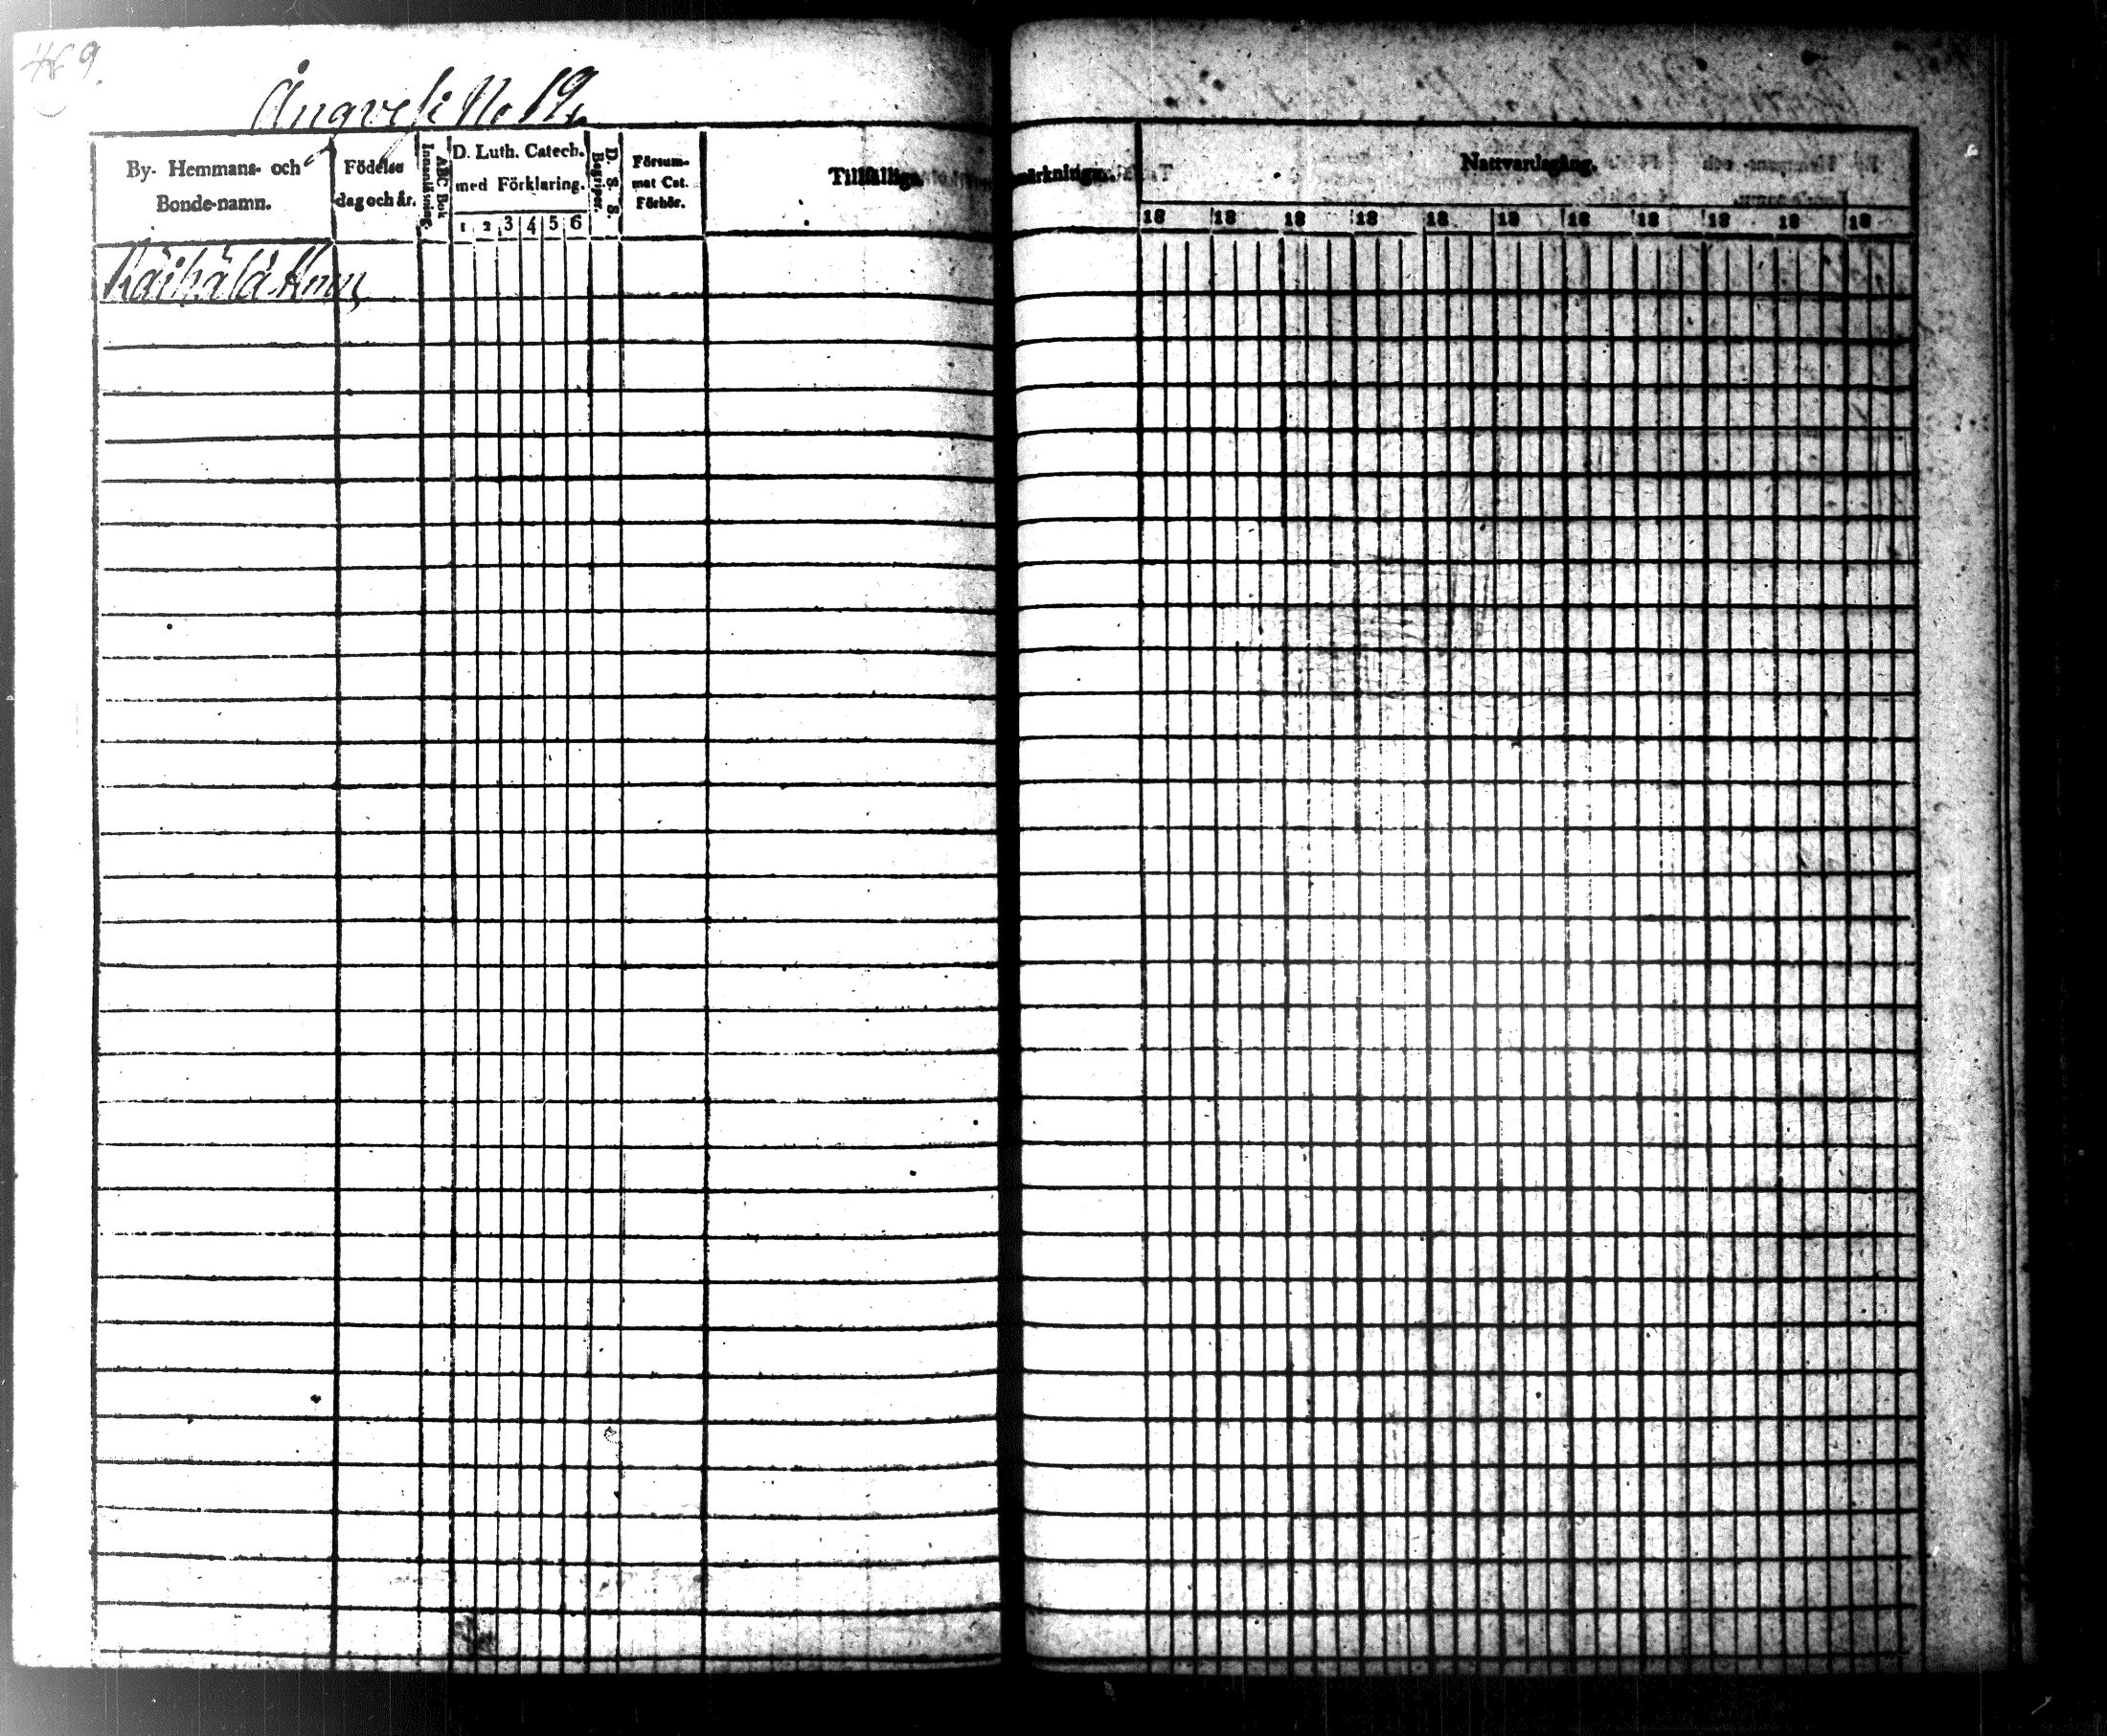 Ångvesi No 19.
By- Hemmans- och Bonde-namn.
Födelse dag och år.
ABC Bok Innanläsning.
D. Luth. Catech. med Förklaring.
1 2 3 4 5 6
D. S. S. Begriper.
Försum- mat Cat. Förhör.
Tillfälliga
märkningar.
Nattvardsgång.
18 18 18 18 18 18 18 18 18 18 18
Räihälä